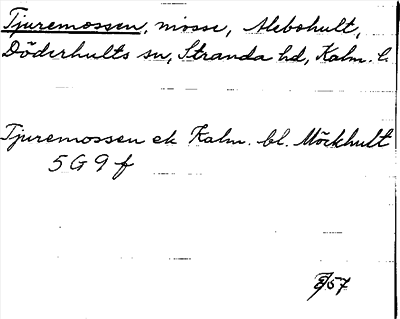 Tjuremossen, mosse, Alebohult,
Döderhults sn, Stranda hd, Kalm. l.
Tjuremossen ek Kalm. bl. Möckhult
5 G 9 f
57